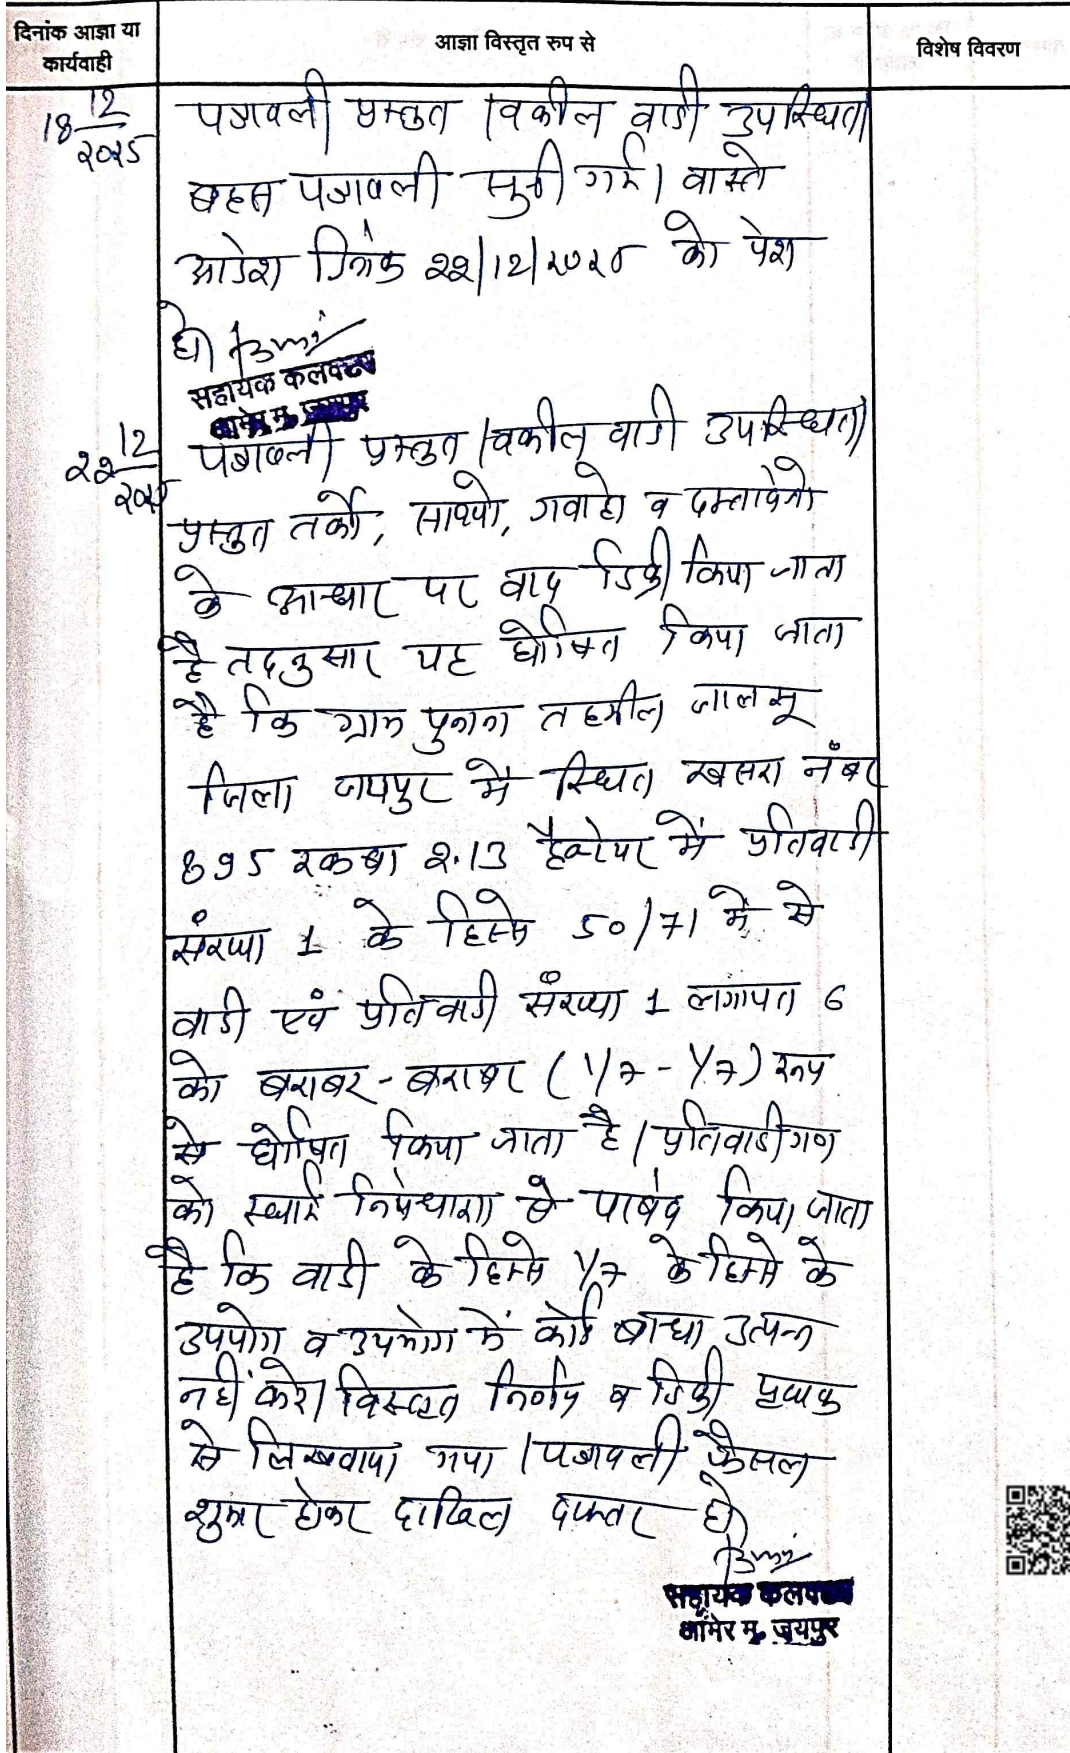 दिनांक आज्ञा या
कार्यवाही
आज्ञा विस्तृत रुप से
विशेष विवरण
18 12/2025
पत्रावली प्रस्तुत। वकील वादी उपस्थित।
बहस पत्रावली सुनी गई। वास्ते
आदेश दिनांक 22/12/2025 को पेश
हो।
सहायक कलक्टर
आमेर मु. जयपुर
22 12/2025
पत्रावली प्रस्तुत। वकील वादी उपस्थित।
प्रस्तुत तर्को, साक्ष्यो, गवाहो व दस्तावेजो
के आधार पर वाद डिक्री किया जाता
है तदनुसार यह घोषित किया जाता
है कि ग्राम तहसील जालसू
जिला जयपुर में स्थित खसरा नंबर
895 रकबा 2.13 हैक्टेयर में प्रतिवादी
संख्या 1 के हिस्से 50/71 में से
वादी एवं प्रतिवादी संख्या 1 लगायत 6
को बराबर-बराबर (1/7-1/7) रूप
से घोषित किया जाता है। प्रतिवादीगण
को स्थाई निषेधाज्ञा से पाबंद किया जाता
है कि वादी के हिस्से 1/7 के हिस्से के
उपयोग व उपभोग में कोई बाधा उत्पन्न
नहीं करे। विस्तृत निर्णय व डिक्री पृथक
से लिखवाया गया। पत्रावली फैसल
शुमार होकर दाखिल दफ्तर हो।
सहायक कलक्टर
आमेर मु. जयपुर